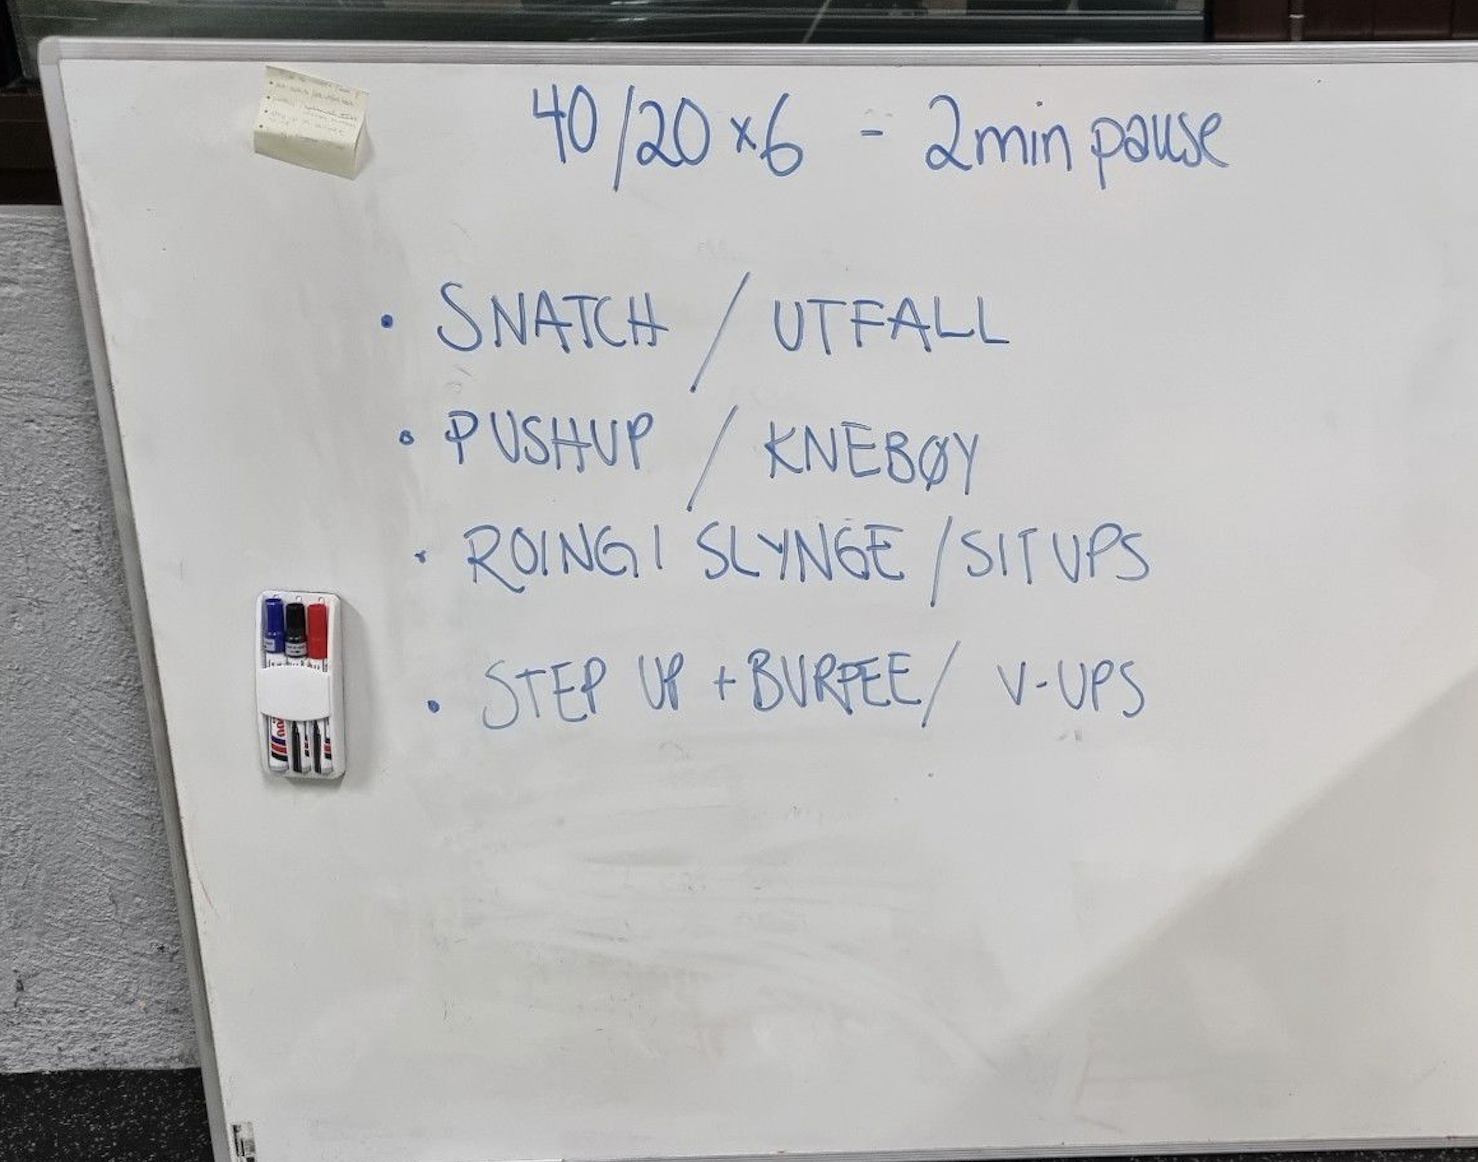 40/20 x 6 - 2 min pause
• SNATCH / UTFALL
• PUSHUP / KNEBØY
• ROING I SLYNGE / SIT UPS
• STEP UP + BURPEE / V-UPS